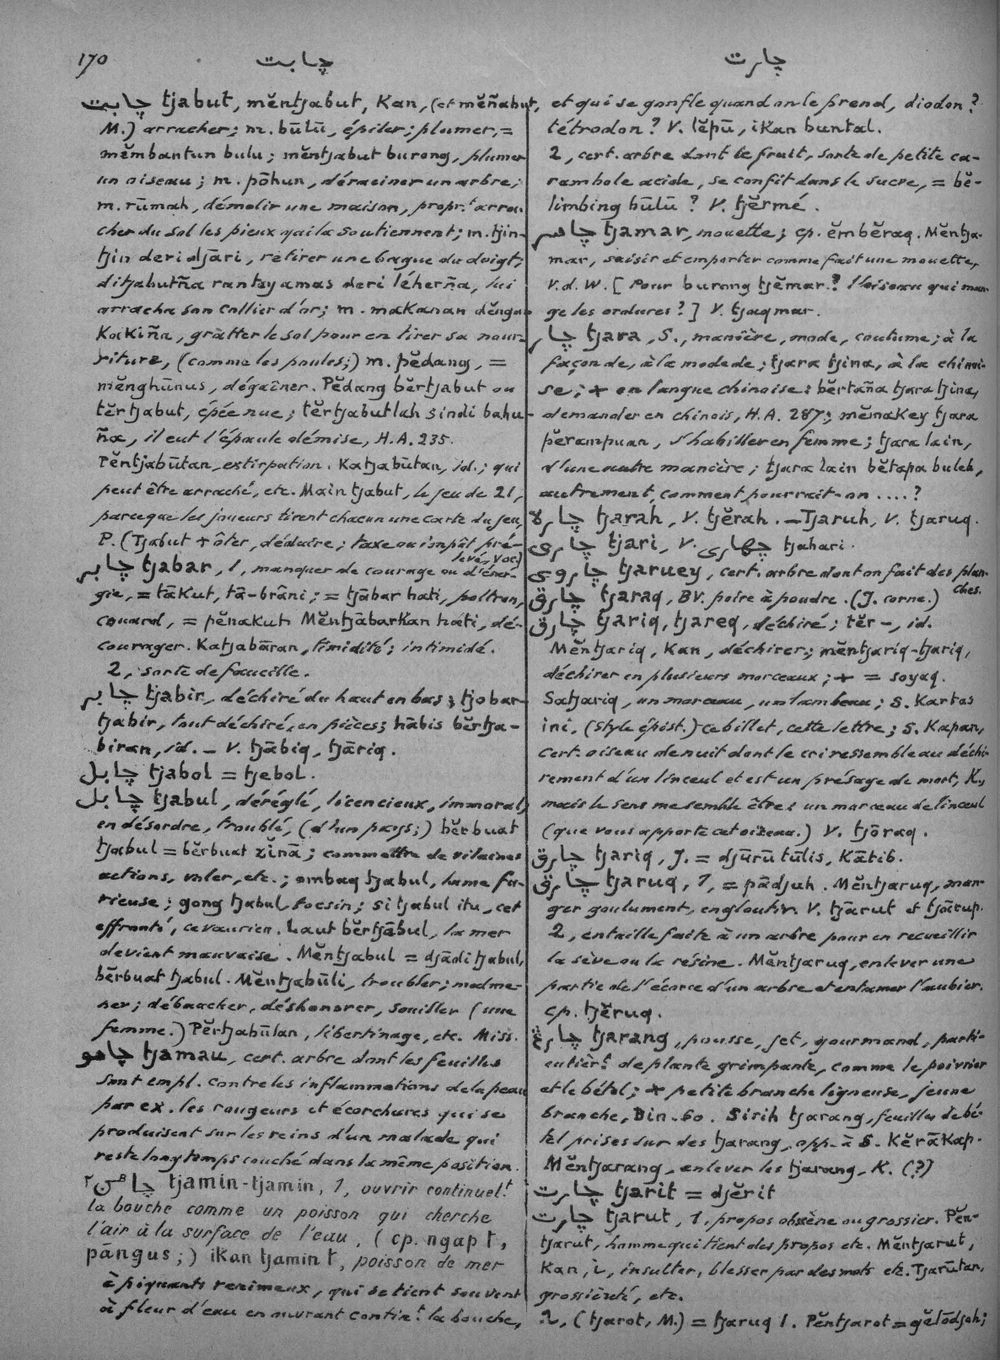 170
چابت
چارت
چابت tjabut, mĕntjabut, Kan, (et mĕñabut,
M.) arracher; m. būlū, épiler; plumer, =
mĕmbantun bulu; mĕntjabut burong, plumer
un oiseau; m. pōhun, déraciner un arbre;
m. rūmah, démolir une maison, propr.t arra-
cher du sol les pieux qui la soutiennent; m. tjin-
tjin deri djāri, retirer une bague du doigt;
ditjabutña rantey amas deri léherña, lui
arracha son collier d'or; m. makanan dĕngan
Kakiña, gratter le sol pour en tirer sa nour-
riture, (comme les poules;) m. pĕdang, =
mĕnghūnus, dégaîner. Pĕdang bĕrtjabut ou
tĕrtjabut, épée nue; tĕrtjabutlah sindi bahu-
ña, il eut l'épaule démise, H.A. 235.
Pĕntjabūtan, extirpation. Katjabūtan, id.; qui
peut être arraché, etc. Main tjabut, le jeu de 21,
parceque les joueurs tirent chacun une carte du jeu,
P. (Tjabut + ôter, déduire; taxe ou impôt pré-
levé, Voc.)
چابر tjabar, 1, manquer de courage ou d'éner-
gie, = tākut, tā-brâni; = tjābar hati, poltron,
couard, = pĕnakut. Mĕntjābarkan hāti, dé-
courager. Katjabāran, timidité; intimidé.
2, sorte de faucille.
چابر tjabir, déchiré du haut en bas; tjobar-
tjabir, tout déchiré, en pièces; hābis bĕrtja-
biran, id. – V. tjābiq, tjāriq.
چابل tjabol = tjebol.
چابل tjabul, déréglé, licencieux, immoral;
en désordre, troublé, (d'un pays;) bĕrbuat
tjabul = bĕrbuat zīnā; commettre de vilaines
actions, voler, etc.; ombaq tjabul, lame fu-
rieuse; gong tjabul, tocsin; si tjabul itu, cet
effronté, ce vaurien. Laut bĕrtjābul, la mer
devient mauvaise. Mĕntjabul = djādi tjabul,
bĕrbuat tjabul. Mĕntjabūli, troubler; malme-
ner; débaucher, déshonorer, souiller (une
femme.) Pĕrtjabūlan, libertinage, etc. Miss.
چامو tjamau, cert. arbre dont les feuilles
sont empl. contre les inflammations de la peau
par ex. les rougeurs et écorchures qui se
produisent sur les reins d'un malade qui
reste longtemps couché dans la même position.
چامن٢ tjamin-tjamin, 1, ouvrir continuel.t
la bouche comme un poisson qui cherche
l'air à la surface de l'eau. (cp. ngap t,
pāngus;) ikan tjamin t, poisson de mer
à piquants venimeux, qui se tient souvent
à fleur d'eau en ouvrant contin.t la bouche,
et qui se gonfle quand on le prend, diodon?
tétrodon? V. lĕpū, ikan buntal.
2, cert. arbre dont le fruit, sorte de petite ca-
rambole acide, se confit dans le sucre, = bĕ-
limbing būlū? V. tjĕrmé.
چامر tjamar, mouette; cp. ĕmbĕraq. Mĕntja-
mar, saisir et emporter comme fait une mouette,
V.d.W. [Pour burong tjĕmar? l'oiseau qui man-
ge les ordures?] V. tjaqmar.
چار tjara, S., manière, mode, coutume; à la
façon de, à la mode de; tjara tjina, à la chinoi-
se; + en langue chinoise: bĕrtaña tjara tjina,
demander en chinois, H.A. 287; mĕmakey tjara
pĕrampuan, s'habiller en femme; tjara lain,
d'une autre manière; tjara lain bĕtapa buleh,
autrement, comment pourrait-on ....?
چاره tjarah, V. tjĕrah. – Tjaruh, V. tjaruq.
چاري tjari, V. چهاري tjahari.
چاروي tjaruey, cert. arbre dont on fait des plan-
ches.
چارق tjaraq, BV. poire à poudre. (J. corne.)
چارق tjariq, tjareq, déchiré; tĕr-, id.
Mĕntjariq, Kan, déchirer; mĕntjariq-tjariq,
déchirer en plusieurs morceaux; + = soyaq.
Satjariq, un morceau, un lambeau; S. Kartas
ini, (style épist.) ce billet, cette lettre; S. Kapan,
cert. oiseau de nuit dont le cri ressemble au déchi-
rement d'un linceul et est un présage de mort, K.,
mais le sens me semble être: un morceau de linceul
(que vous apporte cet oiseau.) V. tjōraq.
چارق tjariq, J. = djūrū tūlis, Kātib.
چارق tjaruq, 1, = pādjuh. Mĕntjaruq, man-
ger goulument, engloutir. V. tjārut et tjārup.
2, entaille faite à un arbre pour en recueillir
la sève ou la résine. Mĕntjaruq, enlever une
partie de l'écorce d'un arbre et entamer l'aubier.
cp. tjĕruq.
چارڠ tjarang, pousse, jet, gourmand, parti-
culièr.t de plante grimpante, comme le poivrier
et le bétel; + petite branche ligneuse, jeune
branche, Bin. 60. Sirih tjarang, feuilles de bé-
tel prises sur des tjarang, opp. à S. Kĕrākap.
Mĕntjarang, enlever les tjarang, K. (?)
چارت tjarit = djĕrit
چارت tjarut, 1, propos obscène ou grossier. Pĕn-
tjarut, homme qui tient des propos etc. Mĕntjarut,
Kan, i, insulter, blesser par des mots etc. Tjarūtan,
grossièreté, etc.
2, (tjarot, M.) = tjaruq 1. Pĕntjarot = gĕlōdjoh;